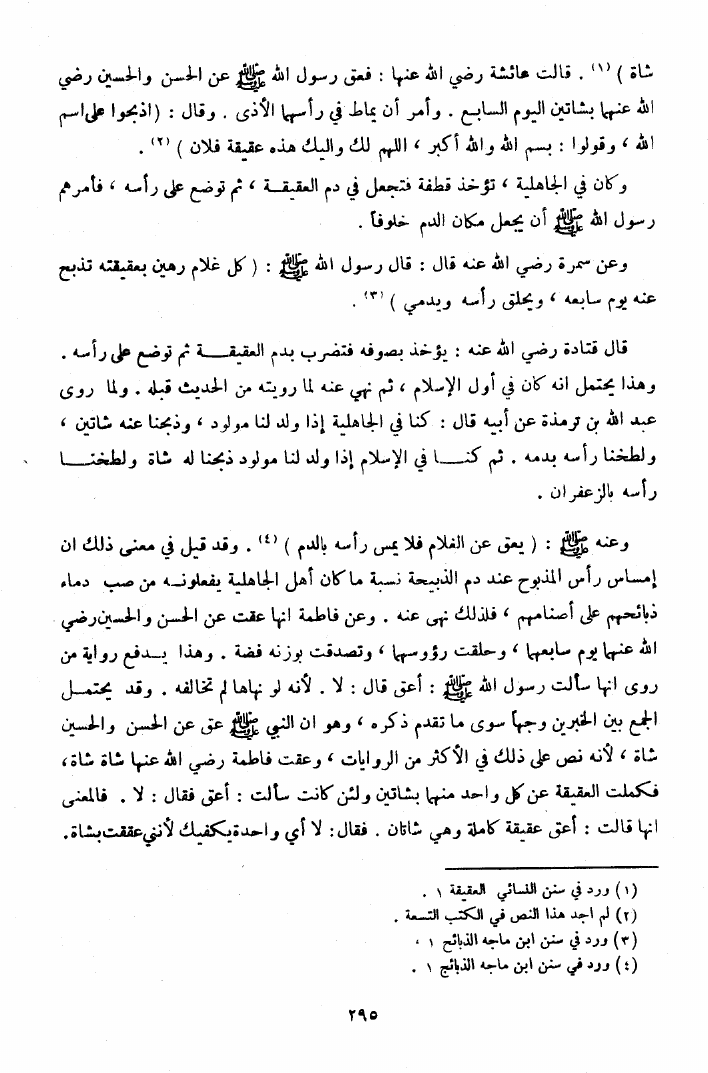 شاة ) (١) . قالت عائشة رضي الله عنها : فعق رسول الله ﷺ عن الحسن والحسين رضي
الله عنهما بشاتين اليوم السابع . وأمر أن يماط في رأسهما الأذى . وقال : (اذبحوا على اسم
الله ، وقولوا : بسم الله والله أكبر ، اللهم لك واليك هذه عقيقة فلان ) (٢) .
وكان في الجاهلية ، تؤخذ قطفة فتجعل في دم العقيقة ، ثم توضع على رأسه ، فأمرهم
رسول الله ﷺ أن يجعل مكان الدم خلوفاً .
وعن سمرة رضي الله عنه قال : قال رسول الله ﷺ : ( كل غلام رهين بعقيقته تذبح
عنه يوم سابعه ، ويحلق رأسه ويدمي ) (٣) .
قال قتادة رضي الله عنه : يؤخذ بصوفه فتضرب بدم العقيقة ثم توضع على رأسه .
وهذا يحتمل انه كان في أول الإسلام ، ثم نهي عنه لما رويته من الحديث قبله . ولما روى
عبد الله بن ترمذة عن أبيه قال : كنا في الجاهلية إذا ولد لنا مولود ، وذبحنا عنه شاتين ،
ولطخنا رأسه بدمه . ثم كنا في الإسلام إذا ولد لنا مولود ذبحنا له شاة ولطخنا
رأسه بالزعفران .
وعنه ﷺ : ( يعق عن الغلام فلا يمس رأسه بالدم ) (٤) . وقد قيل في معنى ذلك ان
إمساس رأس المذبوح عند دم الذبيحة نسبة ما كان أهل الجاهلية يفعلونه من صب دماء
ذبائحهم على أصنامهم ، فلذلك نهى عنه . وعن فاطمة انها عقت عن الحسن والحسين رضي
الله عنهما يوم سابعهما ، وحلقت رؤوسهما ، وتصدقت بوزنه فضة . وهذا يدفع رواية من
روى انها سألت رسول الله ﷺ : أعق قال : لا . لأنه لو نهاها لم تخالفه . وقد يحتمل
الجمع بين الخبرين وجهاً سوى ما تقدم ذكره ، وهو ان النبي ﷺ عق عن الحسن والحسين
شاة ، لأنه نص على ذلك في الأكثر من الروايات ، وعقت فاطمة رضي الله عنها شاة شاة ،
فكملت العقيقة عن كل واحد منهما بشاتين ولئن كانت سألت : أعق فقال : لا . فالمعنى
انها قالت : أعق عقيقة كاملة وهي شاتان . فقال: لا أي واحدة يكفيك لأنني عققت بشاة.
(١) ورد في سنن النسائي العقيقة ١ .
(٢) لم اجد هذا النص في الكتب التسعة .
(٣) ورد في سنن ابن ماجه الذبائح ١ ،
(٤) ورد في سنن ابن ماجه الذبائح ١ .
٢٩٥